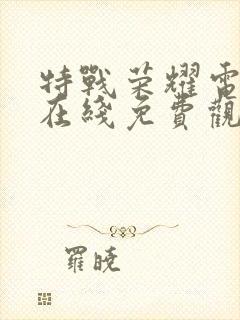 特戰荣耀電
在綫免費觀
羅曉